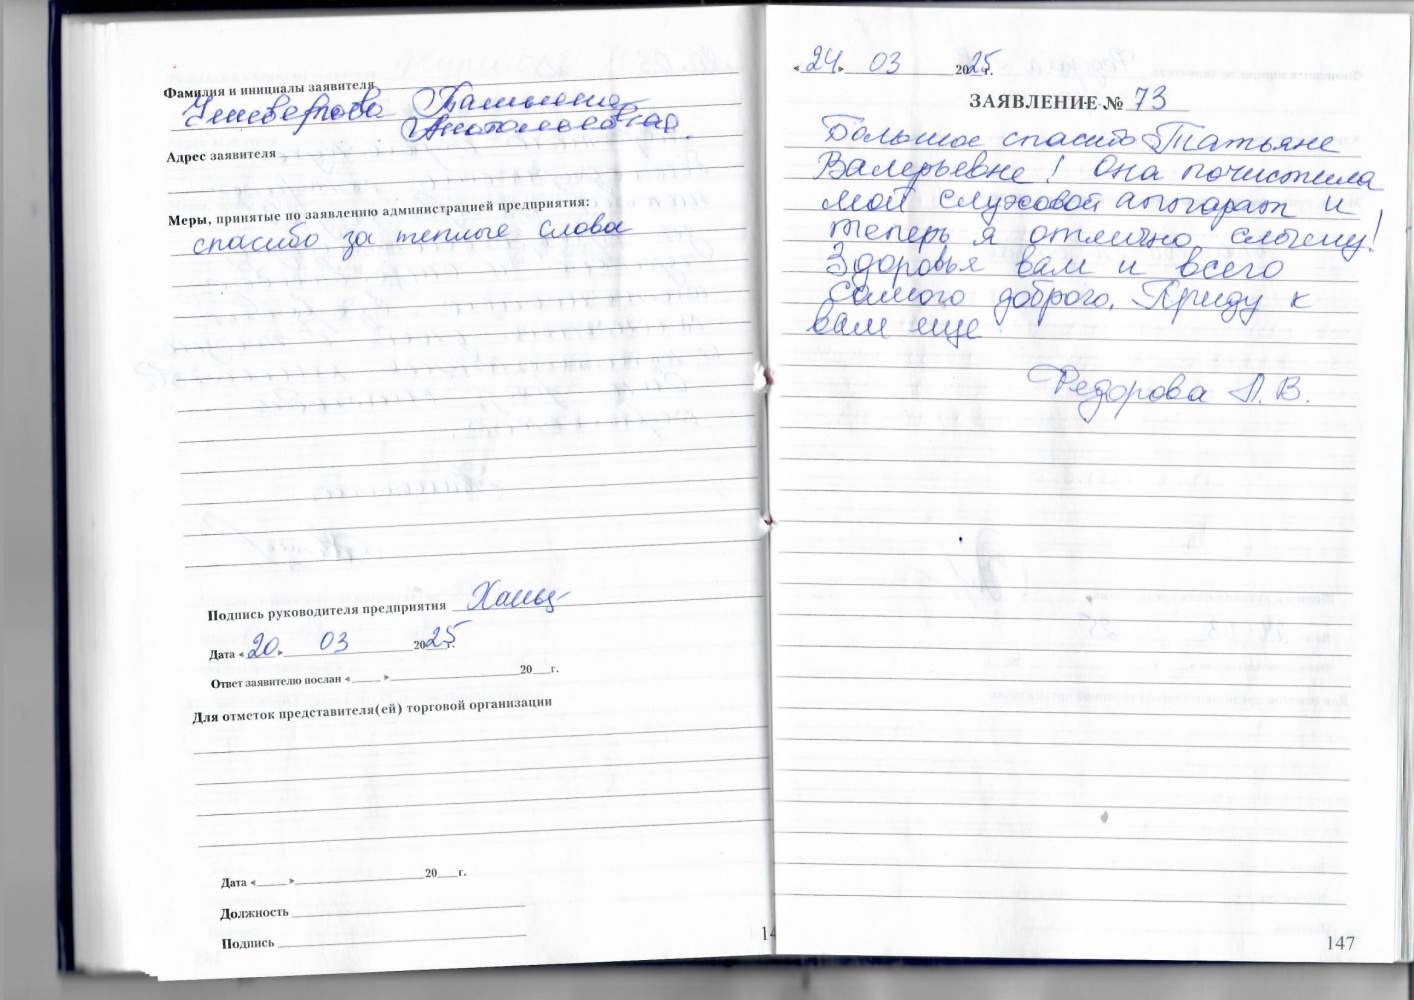 Фамилия и инициалы заявителя
Татьяна
Анатольевна.
Адрес заявителя
Меры, принятые по заявлению администрацией предприятия:
спасибо за теплые слова
Подпись руководителя предприятия
Дата «20» 03 2025г.
Ответ заявителю послан « » 20 г.
Для отметок представителя(ей) торговой организации
Дата « » 20 г.
Должность
Подпись
14
«24» 03 2025г.
ЗАЯВЛЕНИЕ № 73
Большое спасибо Татьяне
Валерьевне! Она почистила
мой слуховой аппарат и
теперь я отлично слышу!
Здоровья вам и всего
самого доброго. Приду к
вам еще
Федорова Л. В.
147